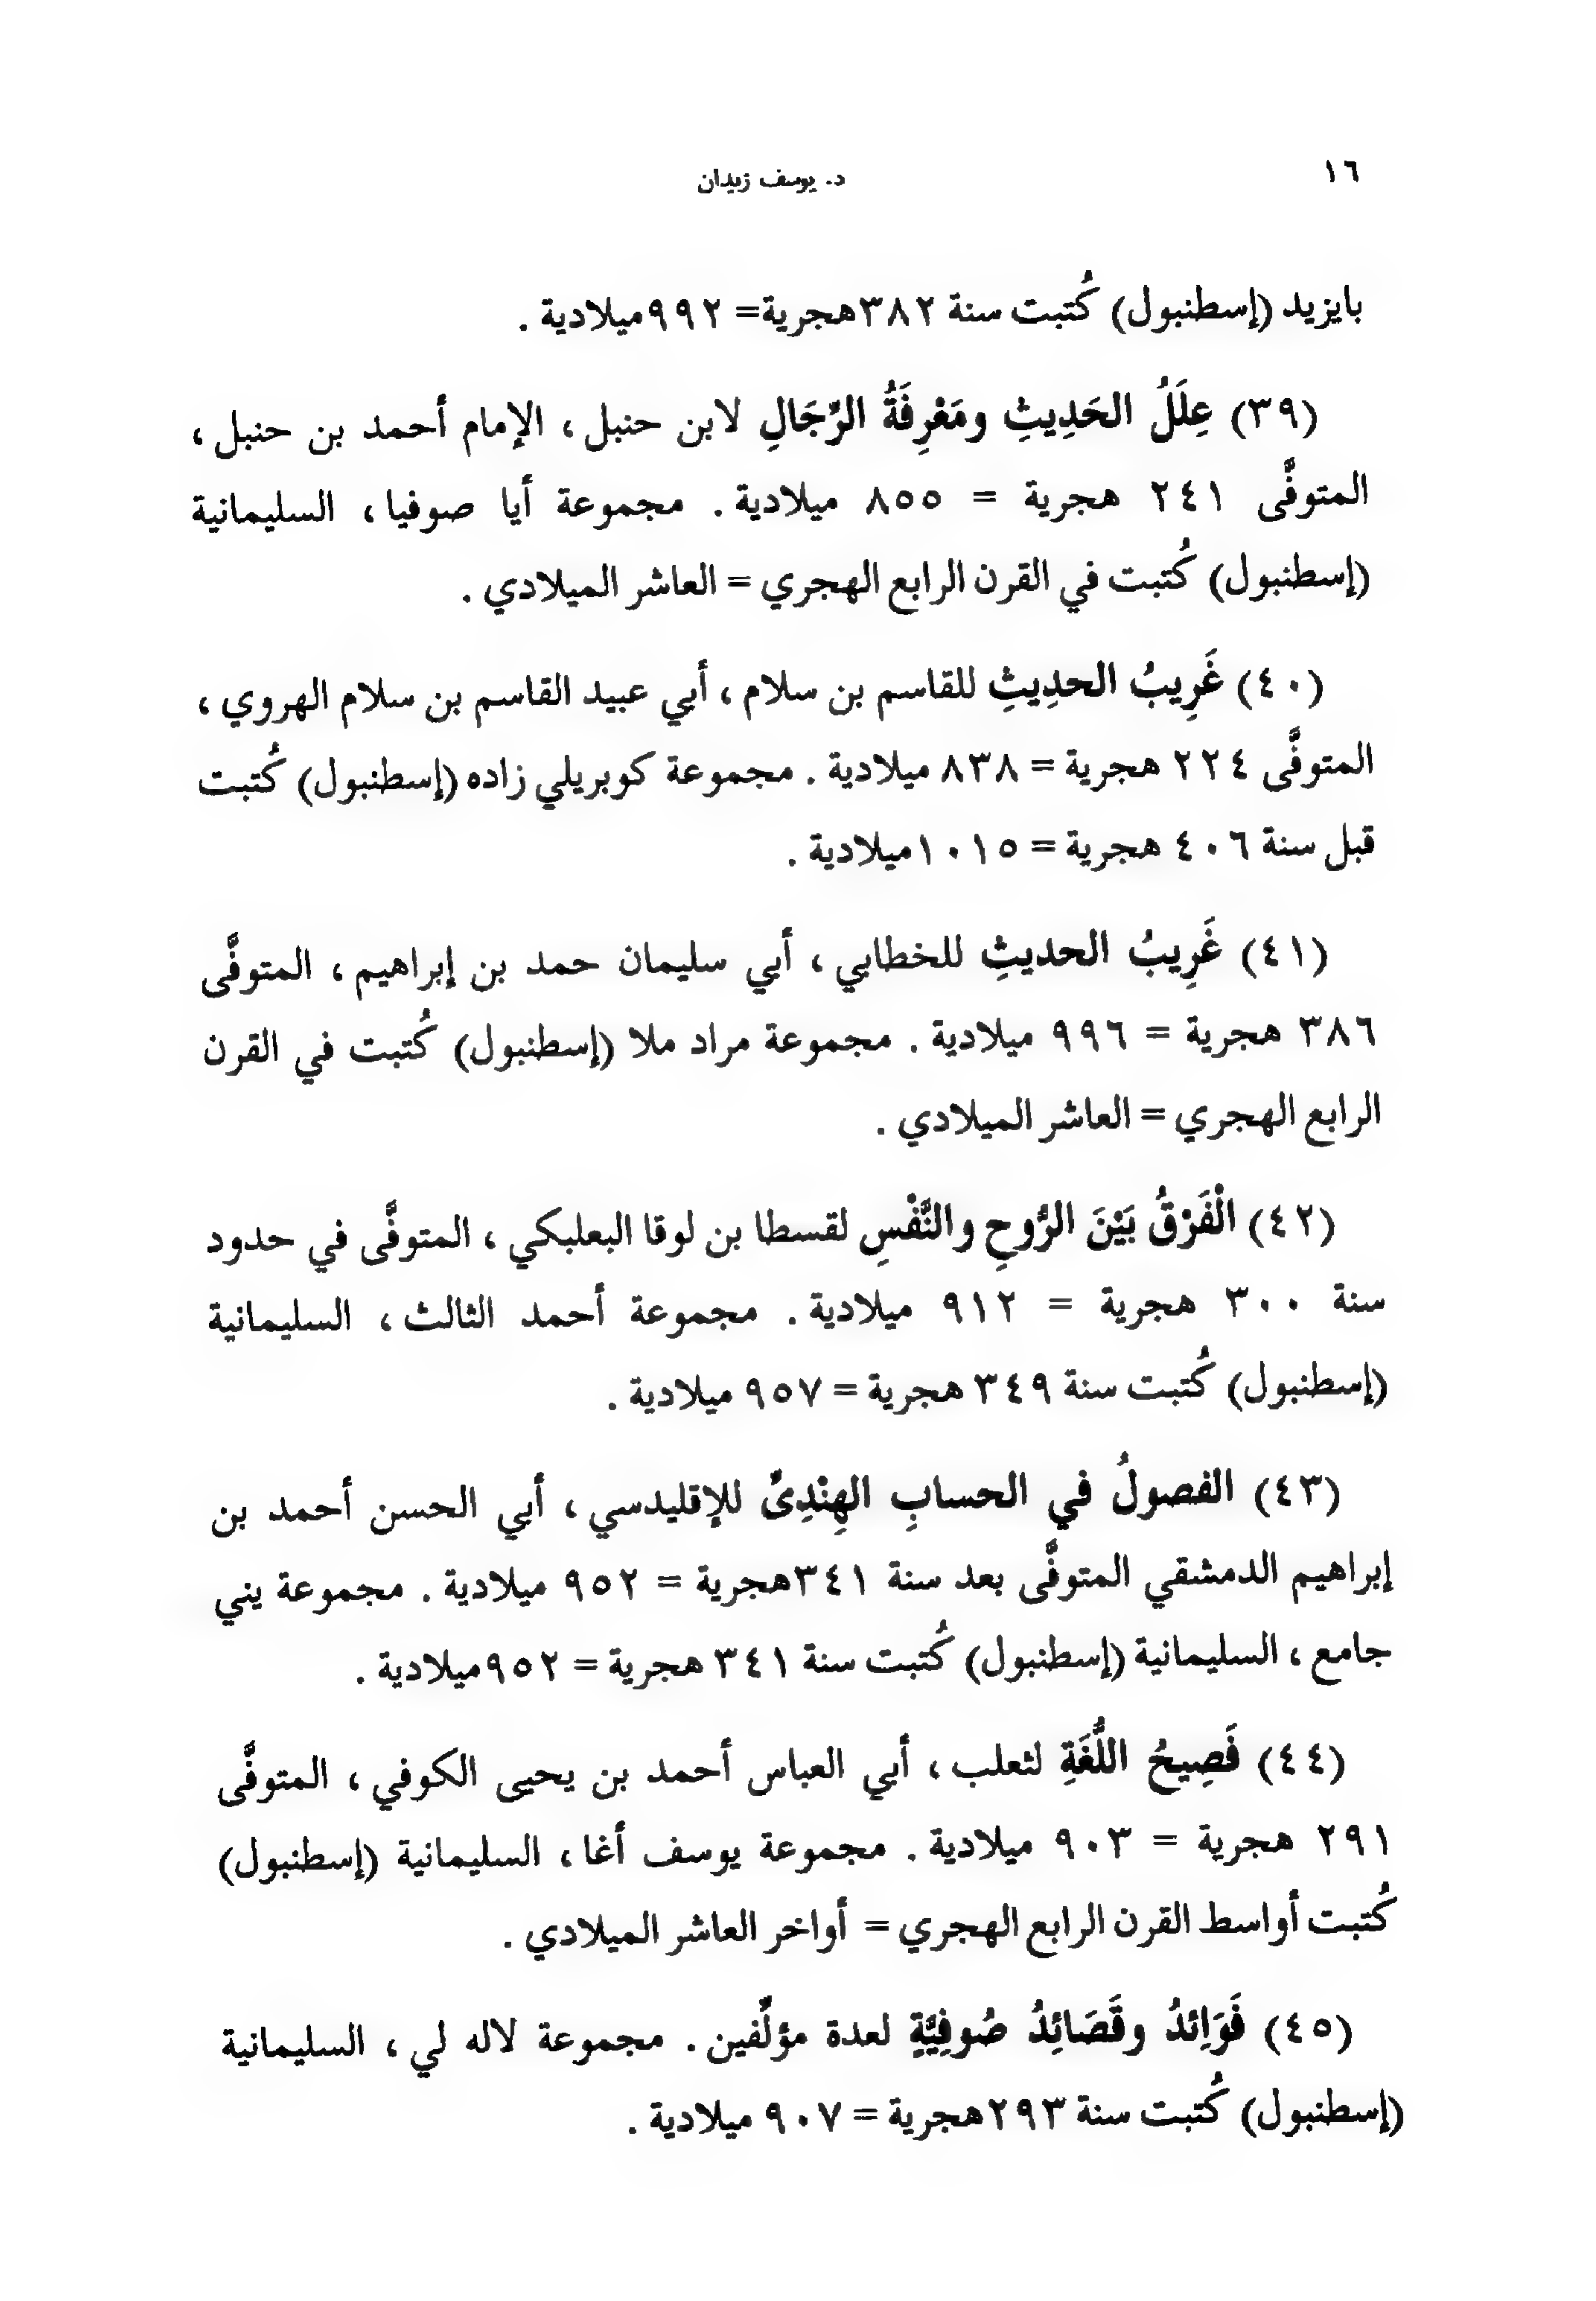 ١٦
د. يوسف زيدان
بايزيد (إسطنبول) كُتبت سنة ٣٨٢هجرية= ٩٩٢ميلادية .
(٣٩) عِلَلُ الحَدِيثِ ومَعْرِفَةُ الرِّجَالِ لابن حنبل ، الإمام أحمد بن حنبل ،
المتوفَّى ٢٤١ هجرية = ٨٥٥ ميلادية . مجموعة أيا صوفيا ، السليمانية
(إسطنبول) كُتبت في القرن الرابع الهجري = العاشر الميلادي .
(٤٠) غَرِيبُ الحدِيثِ للقاسم بن سلام ، أبي عبيد القاسم بن سلام الهروي ،
المتوفَّى ٢٢٤ هجرية = ٨٣٨ ميلادية . مجموعة كوبريلي زاده (إسطنبول) كُتبت
قبل سنة ٤٠٦ هجرية = ١٠١٥ميلادية .
(٤١) غَرِيبُ الحديثِ للخطابي ، أبي سليمان حمد بن إبراهيم ، المتوفَّى
٣٨٦ هجرية = ٩٩٦ ميلادية . مجموعة مراد ملا (إسطنبول) كُتبت في القرن
الرابع الهجري = العاشر الميلادي .
(٤٢) الْفَرْقُ بَيْنَ الرُّوحِ والنَّفْسِ لقسطا بن لوقا البعلبكي ، المتوفَّى في حدود
سنة ٣٠٠ هجرية = ٩١٢ ميلادية . مجموعة أحمد الثالث ، السليمانية
(إسطنبول) كُتبت سنة ٣٤٩ هجرية = ٩٥٧ ميلادية .
(٤٣) الفصولُ في الحسابِ الهِنْدِىِّ للإقليدسي ، أبي الحسن أحمد بن
إبراهيم الدمشقي المتوفَّى بعد سنة ٣٤١هجرية = ٩٥٢ ميلادية . مجموعة يني
جامع ، السليمانية (إسطنبول) كُتبت سنة ٣٤١ هجرية = ٩٥٢ميلادية .
(٤٤) فَصِيحُ اللُّغَةِ لثعلب ، أبي العباس أحمد بن يحيى الكوفي ، المتوفَّى
٢٩١ هجرية = ٩٠٣ ميلادية . مجموعة يوسف أغا ، السليمانية (إسطنبول)
كُتبت أواسط القرن الرابع الهجري = أواخر العاشر الميلادي .
(٤٥) فَوَائِدُ وقَصَائِدُ صُوفِيَّةٍ لعدة مؤلِّفين . مجموعة لاله لي ، السليمانية
(إسطنبول) كُتبت سنة ٢٩٣هجرية = ٩٠٧ ميلادية .